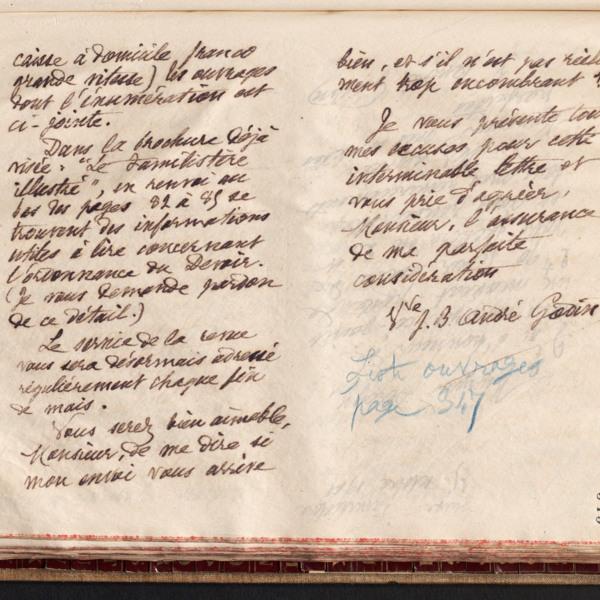 caisse à domicile franco
grande vitesse) les ouvrages
dont l'énumération est
ci-jointe.
Dans la brochure déjà
visée : "Le Familistère
illustré", en renvoi au
bas des pages 82 à 85 se
trouvent des informations
utiles à lire concernant
l'ordonnance du Devoir.
(Je vous demande pardon
de ce détail.)
Le service de la revue
vous sera désormais adressé
régulièrement chaque fin
de mois.
Vous serez bien aimable,
Monsieur, de me dire si
mon envoi vous arrive
bien, et s'il n'est pas réelle
ment trop encombrant
Je vous présente
mes excuses pour cette
interminable lettre et
vous prie d'agréer,
Monsieur, l'assurance
de ma parfaite
considération
Vve J. B. André Godin
List ouvrages
page 347